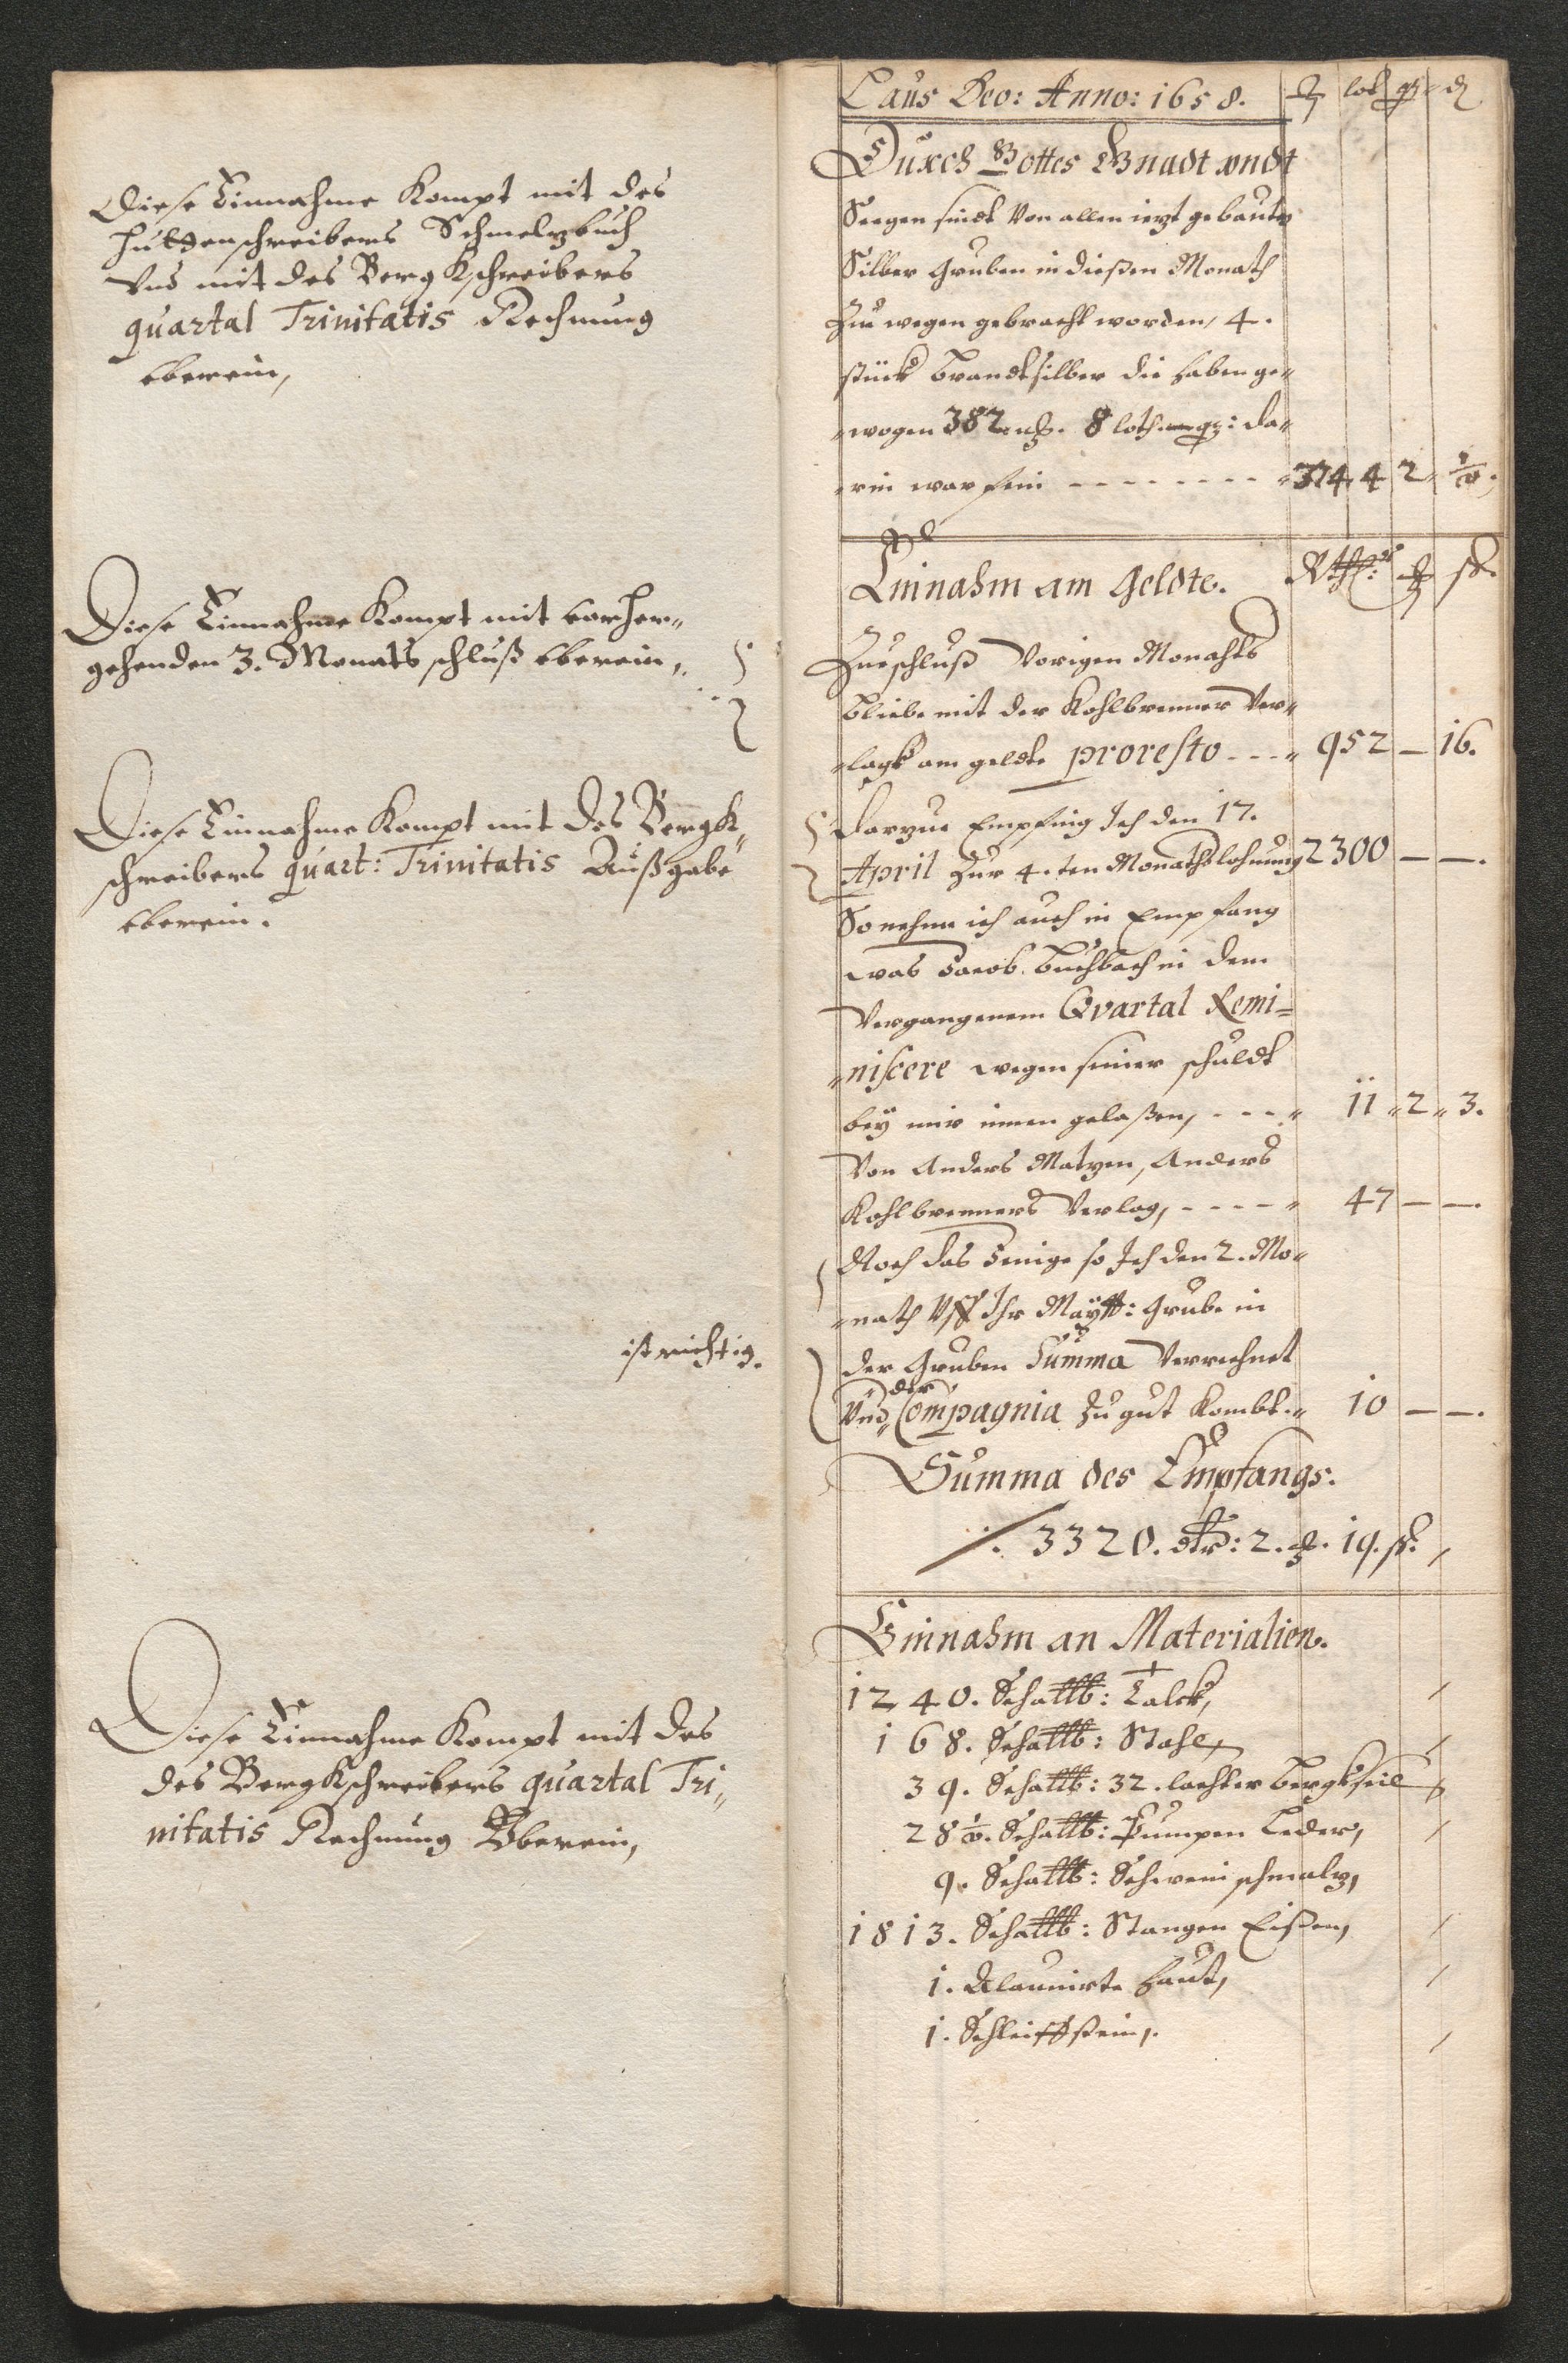 Diese Einnahme Kompt mit des
Hüttenschreibers Schmelzbuch
Und mit des Bergkschreibers
quartal Trinitatis Rechnung
überein,
Diese Einnahme Kompt mit vorher„
gehenden 3. Monats schluß überein,
Diese Einnahme Kompt mit des Bergk„
schreibers quart: Trinitatis Außgabe
überein.
ist richtig.
Diese Einnahme Kompt mit des
des Bergkschreibers quartal Tri„
nitatis Rechnung Überein,
Laus Deo: Anno: 1658. lot
Durch Gottes Gnadt vndt
Seegen sindt Von allen iezt gebauten
Silber Gruben in dießen Monath
Zu wegen gebracht worden, 4.
stück brandtsilber die haben ge„
„wogen 382 mk. 8 loth da„
„rin war fein - - - - - - - - „374 4 2
Einnahm am Geldte. Rthl:
Zueschluß Vorigen Monahts
bliebe mit der Kohlbrenner Ver„
„lagk am geldte proresto - - - „ 952 — 16.
Darzue Empfing Ich den 17.
April Zur 4.ten Monathslohnung 2300 — —.
So nehme ich auch in Empfang
was Jacob Buchbach in dem
Vergangenem Qvartal Remi=
„niscere wegen seiner schuldt
bey mir innen gelaßen, - - - „ 11 „ 2 „ 3.
Von Anders Matzen, Anders
Kohlbrenners Verlag, - - - - „ 47 — —.
Noch das Jenige so Ich den 2. Mo„
„nath Vff Ihr Maytt: Grube in
der Gruben Summa Verrechnet
Vnd der Compagnia Zu gut Kombt. „ 10 — —.
Summa des Empfangs:
3320. dlr: 2. 19.
Einnahm an Materialien.
1240. Schallb: Talck,
168. Schallb: Stahl,
39. Schallb: 32. lachter bergkseil
28 ½. Schallb: Pumpen Leder,
9. Schallb: Schwein schmalz,
1813. Schallb: Stangen Eisen,
1. Alaunirte Haut,
1. Schleiffstein,.